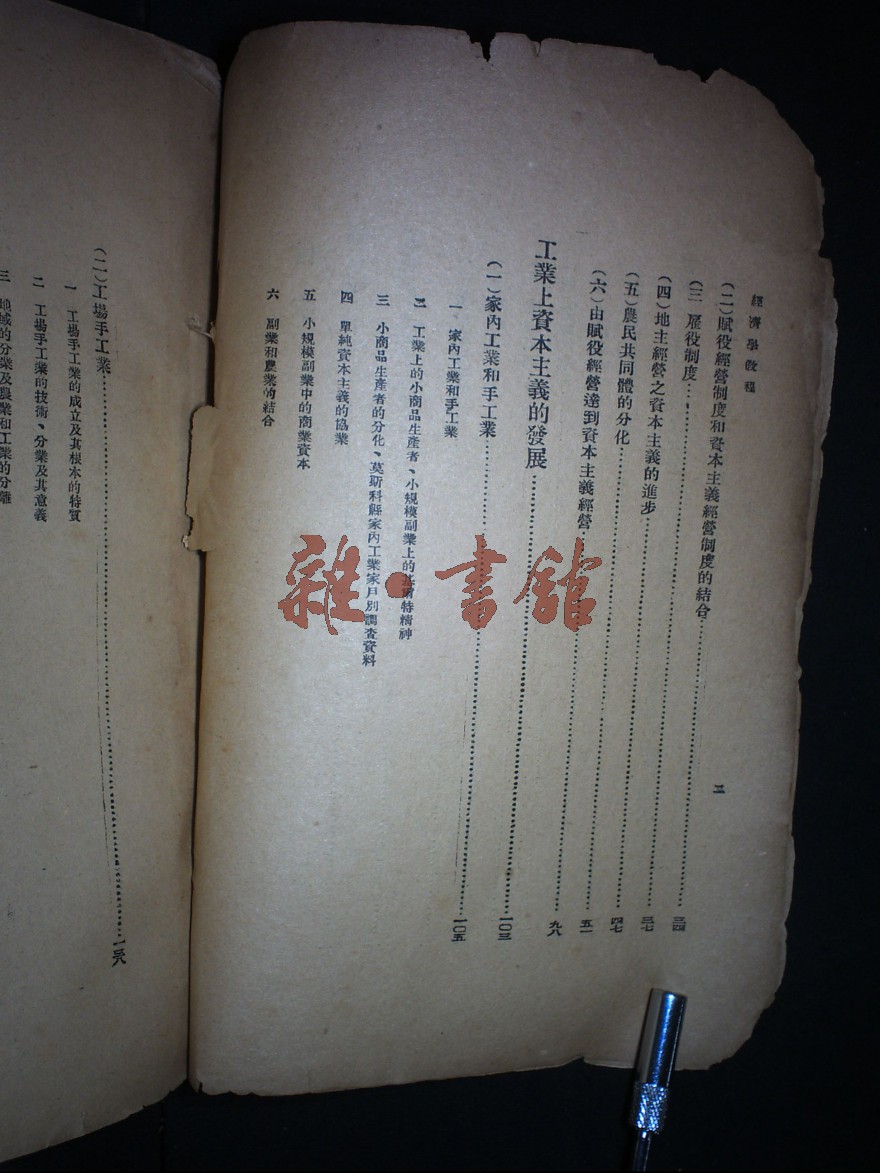 經濟學教程
二
(二)賦役經營制度和資本主義經營制度的結合……三四
(三 雇役制度……三七
(四)地主經營之資本主義的進步……四七
(五)農民共同體的分化……五一
(六)由賦役經營達到資本主義經營……九八
工業上資本主義的發展……一〇三
(一)家內工業和手工業……一〇五
一 家內工業和手工業
二 工業上的小商品生產者、小規模副業上的基爾特精神
三 小商品生產者的分化、莫斯科縣家內工業家戶別調查資料
四 單純資本主義的協業
五 小規模副業中的商業資本
六 副業和農業的結合
(二)工場手工業……一三八
一 工場手工業的成立及其根本的特質
二 工場手工業的技術、分業及其意義
三 地域的分業及農業和工業的分離
雜·書館